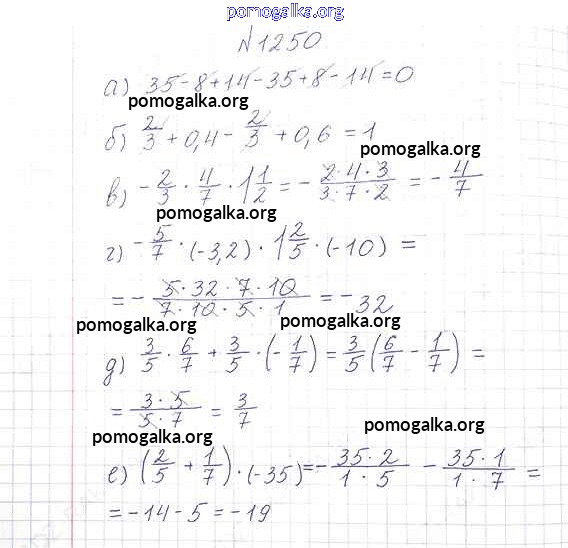 pomogalka.org
N1250
а) 35-8+14-35+8-14=0
pomogalka.org
б) 2/3 + 0,4 - 2/3 + 0,6 = 1
pomogalka.org
в) - 2/3 · 4/7 · 1 1/2 = - 2·4·3/3·7·2 = - 4/7
pomogalka.org
г) - 5/7 · (-3,2) · 1 2/5 · (-10) =
= - 5·32·7·10/7·10·5·1 = - 32
pomogalka.org pomogalka.org
д) 3/5 · 6/7 + 3/5 · (- 1/7) = 3/5 (6/7 - 1/7) =
= 3·5/5·7 = 3/7
pomogalka.org
pomogalka.org
е) (2/5 + 1/7) · (-35) = - 35·2/1·5 - 35·1/1·7 =
= -14 - 5 = -19